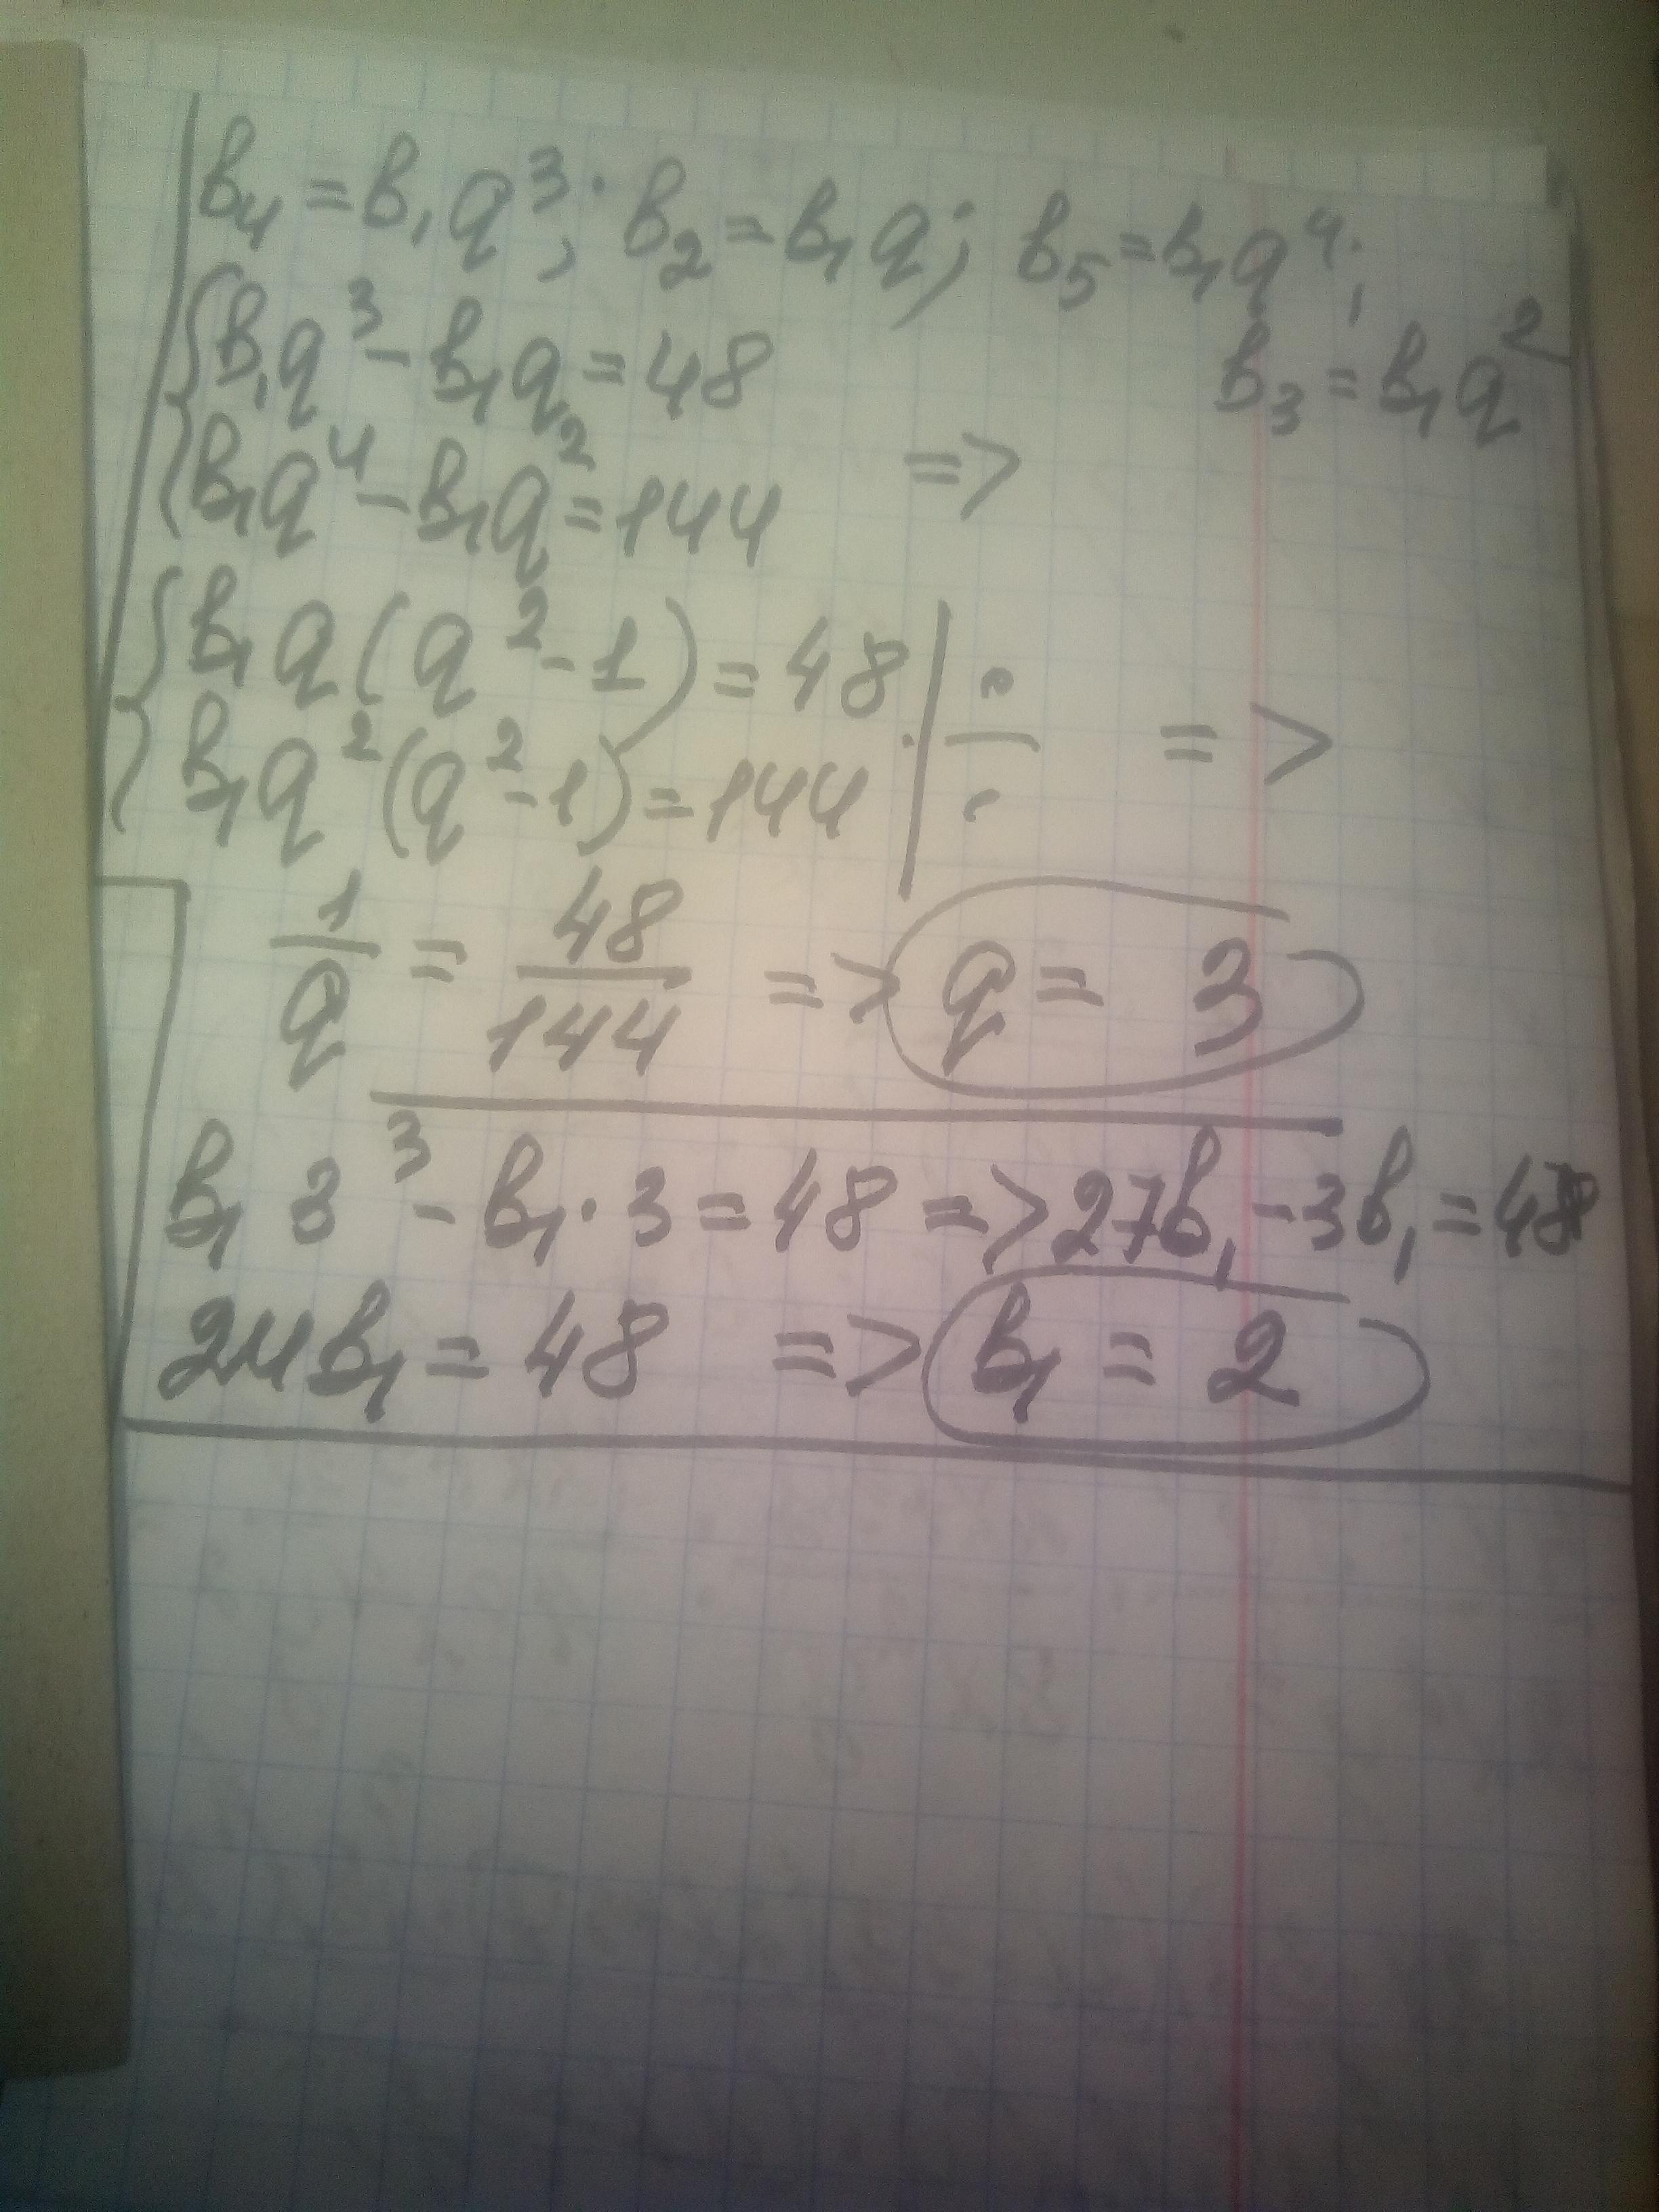 b₄ = b₁q³; b₂ = b₁q; b₅ = b₁q⁴;
b₃ = b₁q²
{b₁q³ - b₁q = 48
{b₁q⁴ - b₁q² = 144 =>
{b₁q(q² - 1) = 48
{b₁q²(q² - 1) = 144 | ÷ =>
1/q = 48/144 => q = 3
b₁ 3³ - b₁ · 3 = 48 => 27b₁ - 3b₁ = 48
24b₁ = 48 => b₁ = 2